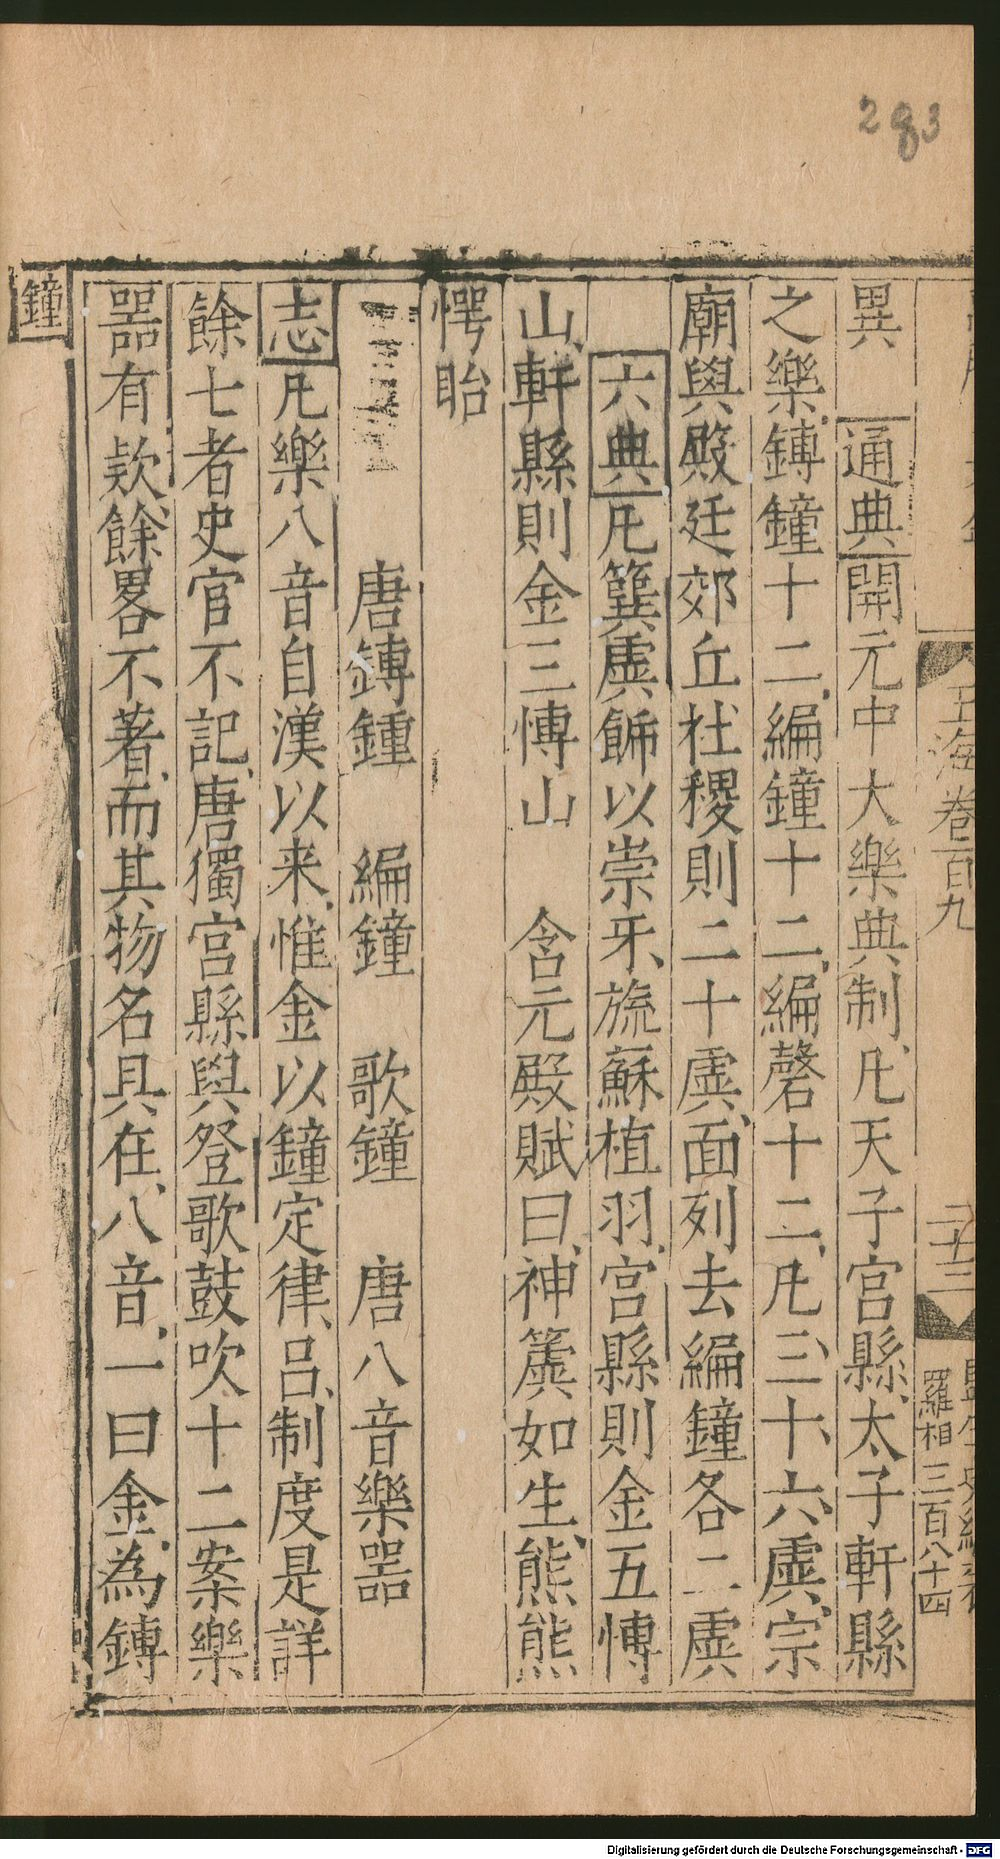 283
玉海卷百九
二十三
羅相三百八十四
異　通典開元中大樂典制凡天子宫縣太子軒縣
之樂鎛鐘十二編鐘十二編磬十二凡三十六虡宗
廟與殿廷郊丘社稷則二十虡面列去編鐘各二虡
六典凡簨虡飾以崇牙旒蘇植羽宫縣則金五博
山軒縣則金三博山　含元殿賦曰神簴如生熊熊
愕眙
唐鎛鍾　編鐘　歌鐘　唐八音樂噐
志凡樂八音自漢以来惟金以鐘定律吕制度是詳
餘七者史官不記唐獨宫縣與登歌鼓吹十二案樂
噐有欵餘畧不著而其物名具在八音一曰金為鎛
鐘
Digitalisierung gefördert durch die Deutsche Forschungsgemeinschaft - DFG